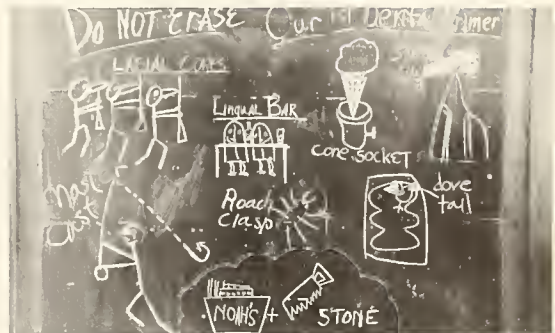 Do NOT ERASE Our Dental Primer
LABIAL CUSPS
LINGUAL BAR
CONE SOCKET
Roach
Clasp
dove
tail
NOAH'S + STONE